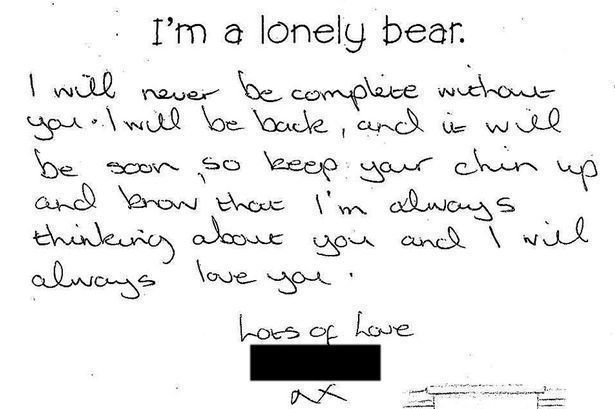 I'm a lonely bear.
I will never be complete without
you. I will be back, and it will
be soon, so keep your chin up
and know that I'm always
thinking about you and I will
always love you.
Lots of Love